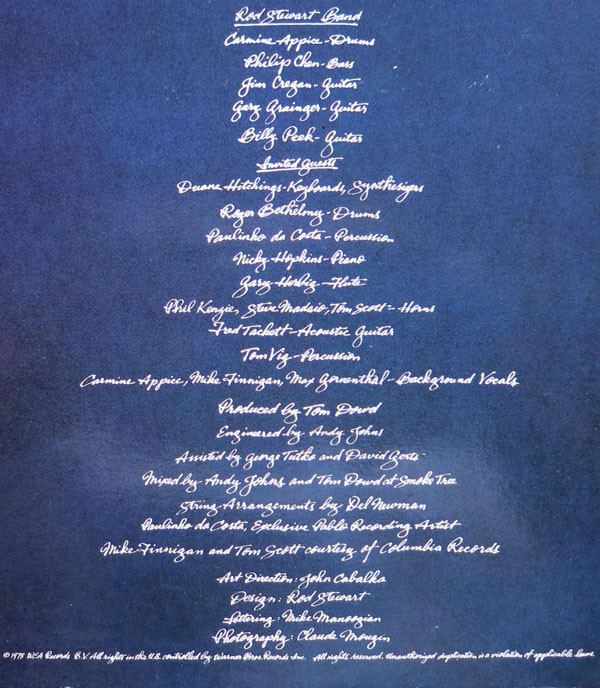 Rod Stewart Band
Carmine Appice - Drums
Philip Chen - Bass
Jim Cregan - Guitar
Gary Grainger - Guitar
Billy Peek - Guitar
Invited Guests
Duane Hitchings - Keyboards, Synthesizers
Roger Bethelmy - Drums
Paulinho da Costa - Percussion
Nicky Hopkins - Piano
Gary Herbig - Flute
Phil Kenzie, Steve Madaio, Tom Scott - Horns
Fred Tackett - Acoustic Guitar
Tom Vig - Percussion
Carmine Appice, Mike Finnigan, Max Gronenthal - Background Vocals
Produced by Tom Dowd
Engineered by Andy Johns
Assisted by George Tutko and David Gertz
Mixed by Andy Johns and Tom Dowd at Smoke Tree
String Arrangements by Del Newman
Paulinho da Costa, Exclusive Pablo Recording Artist
Mike Finnigan and Tom Scott courtesy of Columbia Records
Art Direction: John Cabalka
Design: Rod Stewart
Lettering: Mike Manoogian
Photography: Claude Mougin
© 1978 WEA Records B.V. All rights in the U.S. controlled by Warner Bros. Records Inc. All rights reserved. Unauthorized duplication is a violation of applicable laws.